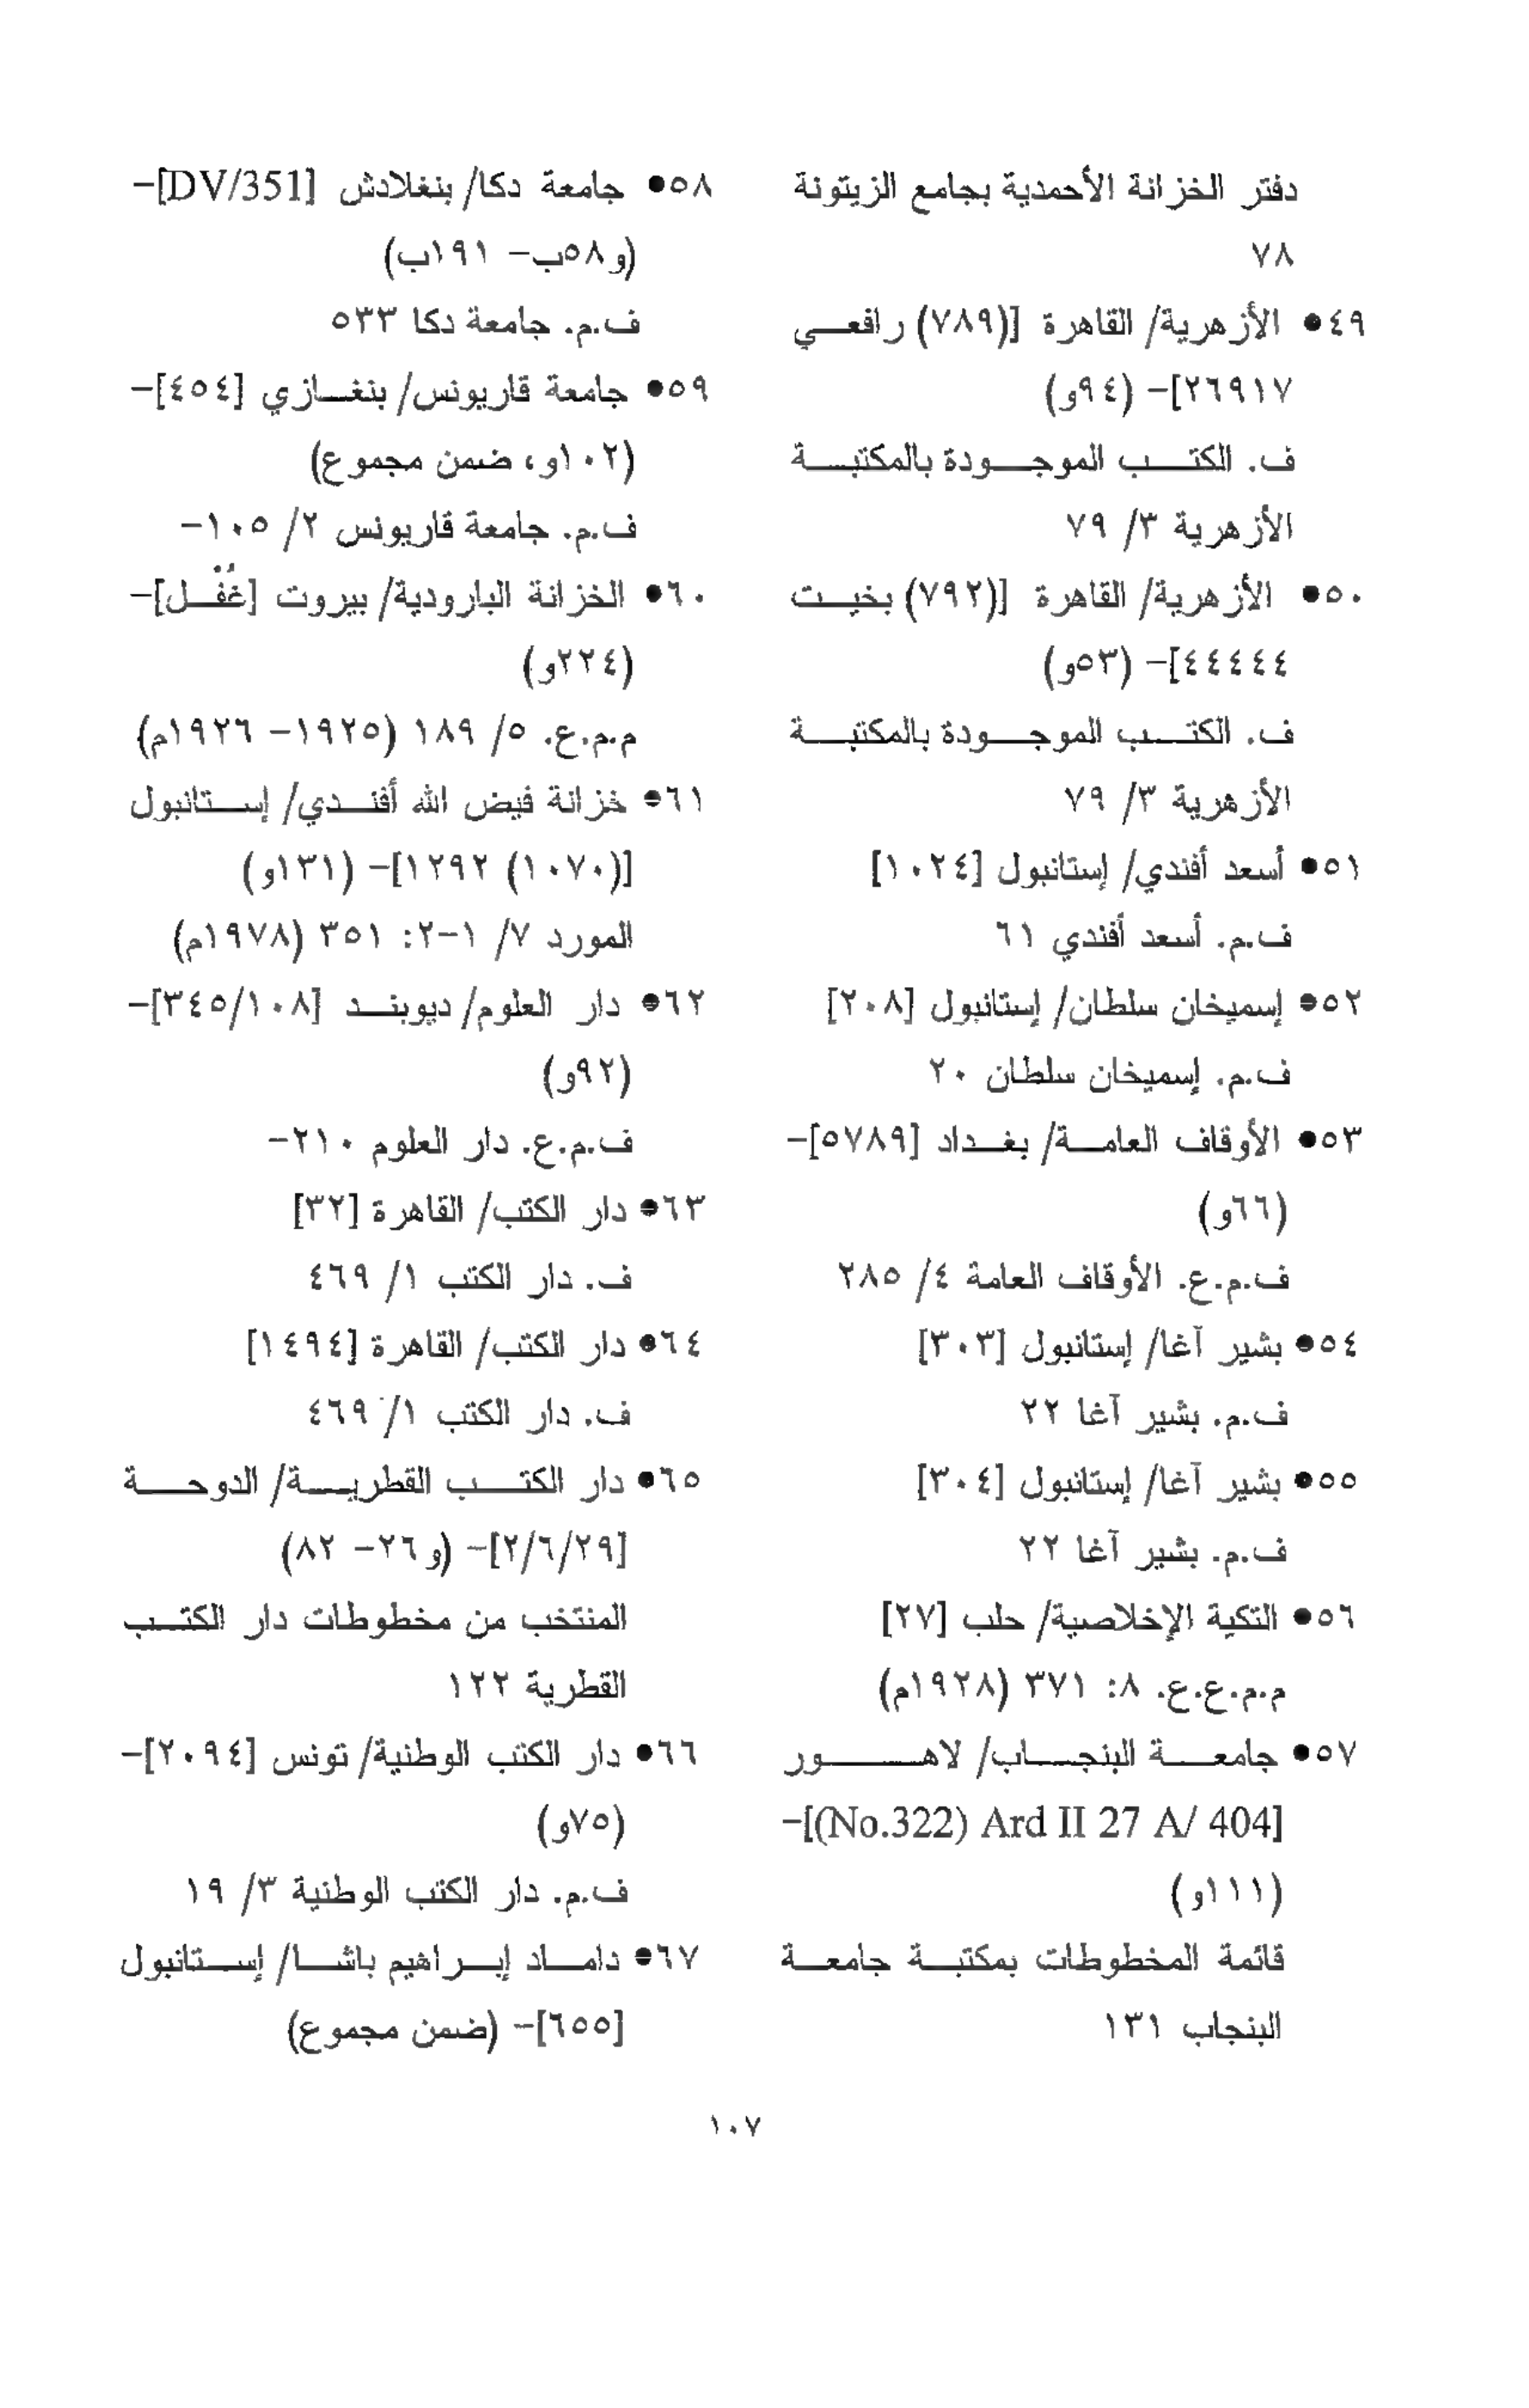 دفتر الخزانة الأحمدية بجامع الزيتونة
٧٨
٤٩● الأزهرية/ القاهرة [(٧٨٩) رافعي
٢٦٩١٧]- (٩٤و)
ف. الكتب الموجودة بالمكتبة
الأزهرية ٣/ ٧٩
٥٠● الأزهرية/ القاهرة [(٧٩٢) بخيت
٤٤٤٤٤]- (٥٣و)
ف. الكتب الموجودة بالمكتبة
الأزهرية ٣/ ٧٩
٥١● أسعد أفندي/ إستانبول [١٠٢٤]
ف.م. أسعد أفندي ٦١
٥٢● إسميخان سلطان/ إستانبول [٢٠٨]
ف.م. إسميخان سلطان ٢٠
٥٣● الأوقاف العامة/ بغداد [٥٧٨٩]-
(٦٦و)
ف.م.ع. الأوقاف العامة ٤/ ٢٨٥
٥٤● بشير آغا/ إستانبول [٣٠٣]
ف.م. بشير آغا ٢٢
٥٥● بشير آغا/ إستانبول [٣٠٤]
ف.م. بشير آغا ٢٢
٥٦● التكية الإخلاصية/ حلب [٢٧]
م.م.ع.ع. ٨: ٣٧١ (١٩٢٨م)
٥٧● جامعة البنجاب/ لاهور
[(No.322) Ard II 27 A/ 404]-
(١١١و)
قائمة المخطوطات بمكتبة جامعة
البنجاب ١٣١
٥٨● جامعة دكا/ بنغلادش [DV/351]-
(و٥٨ب- ١٩١ب)
ف.م. جامعة دكا ٥٣٣
٥٩● جامعة قاريونس/ بنغازي [٤٥٤]-
(١٠٢و، ضمن مجموع)
ف.م. جامعة قاريونس ٢/ ١٠٥-
٦٠● الخزانة البارودية/ بيروت [غُفْل]-
(٢٢٤و)
م.م.ع. ٥/ ١٨٩ (١٩٢٥- ١٩٢٦م)
٦١● خزانة فيض الله أفندي/ إستانبول
[(١٠٧٠) ١٢٩٢]- (١٣١و)
المورد ٧/ ١-٢: ٣٥١ (١٩٧٨م)
٦٢● دار العلوم/ ديوبند [٣٤٥/١٠٨]-
(٩٢و)
ف.م.ع. دار العلوم ٢١٠-
٦٣● دار الكتب/ القاهرة [٣٢]
ف. دار الكتب ١/ ٤٦٩
٦٤● دار الكتب/ القاهرة [١٤٩٤]
ف. دار الكتب ١/ ٤٦٩
٦٥● دار الكتب القطرية/ الدوحة
[٢/٦/٢٩]- (و٢٦- ٨٢)
المنتخب من مخطوطات دار الكتب
القطرية ١٢٢
٦٦● دار الكتب الوطنية/ تونس [٢٠٩٤]-
(٧٥و)
ف.م. دار الكتب الوطنية ٣/ ١٩
٦٧● داماد إبراهيم باشا/ إستانبول
[٦٥٥]- (ضمن مجموع)
١٠٧